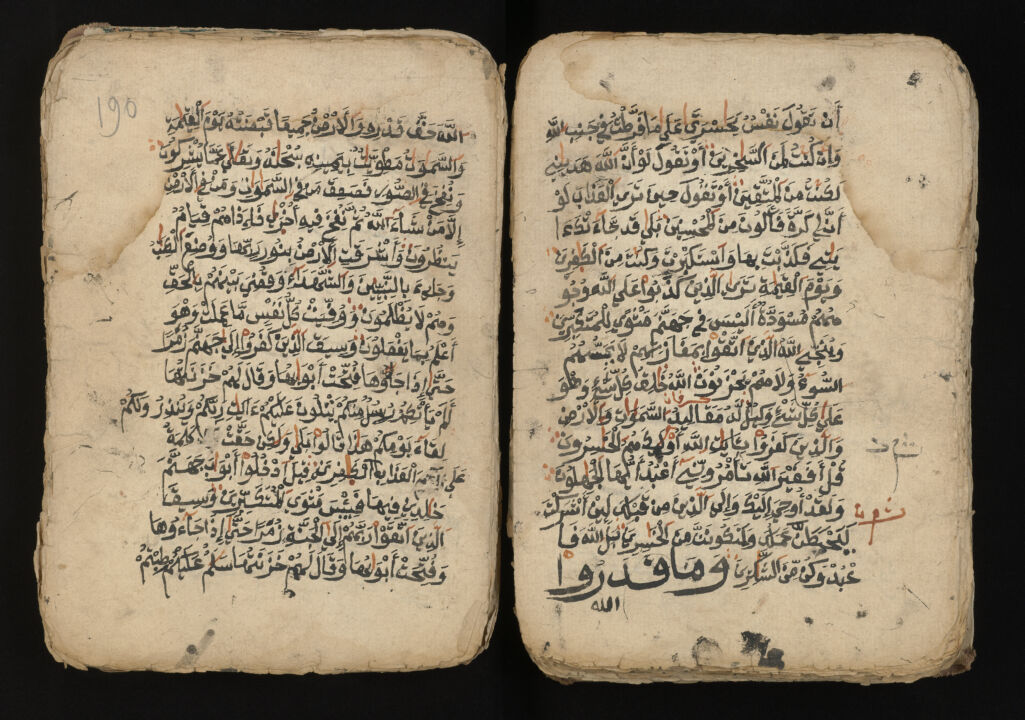 أَنْ تَقُولَ نَفْسٌ يَحَسْرَتَى عَلَى مَا فَرَّطتُ فِي جَنْبِ اللَّهِ
وَإِن كُنتُ لَمِنَ السَّخِرِينَ أَوْ تَقُولَ لَوْ أَنَّ اللَّهَ هَدَىنِي
لَكُنتُ مِنَ الْمُتَّقِينَ أَوْ تَقُولَ حِينَ تَرَى الْعَذَابَ لَوْ
أَنَّ لِي كَرَّةً فَأَكُونَ مِنَ الْمُحْسِنِينَ بَلَى قَدْ جَاءَتْكَ ءَا
يَتِي فَكَذَّبْتَ بِهَا وَاسْتَكْبَرْتَ وَكُنتَ مِنَ الْكَفِرِينَ
وَيَوْمَ الْقِيَمَةِ تَرَى الَّذِينَ كَذَبُوا عَلَى اللَّهِ وُجُو
هُهُم مُّسْوَدَّةٌ أَلَيْسَ فِي جَهَنَّمَ مَثْوًى لِّلْمُتَكَبِّرِينَ
وَيُنَجِّي اللَّهُ الَّذِينَ اتَّقَوْا بِمَفَازَتِهِمْ لَا يَمَسُّهُمُ
السُّوءُ وَلَا هُمْ يَحْزَنُونَ اللَّهُ خَلِقُ كُلِّ شَيْءٍ وَهُوَ
عَلَى كُلِّ شَيْءٍ وَكِيلٌ لَّهُ مَقَالِيدُ السَّمَوَاتِ وَالْأَرْضِ
وَالَّذِينَ كَفَرُوا بِـَٔايَتِ اللَّهِ أُولَئِكَ هُمُ الْخَسِرُونَ
قُلْ أَفَغَيْرَ اللَّهِ تَأْمُرُونِّي أَعْبُدُ أَيُّهَا الْجَهِلُونَ
وَلَقَدْ أُوحِيَ إِلَيْكَ وَإِلَى الَّذِينَ مِن قَبْلِكَ لَئِنْ أَشْرَكْتَ
لَيَحْبَطَنَّ عَمَلُكَ وَلَتَكُونَنَّ مِنَ الْخَسِرِينَ بَلِ اللَّهَ فَا
عْبُدْ وَكُن مِّنَ الشَّكِرِينَ وَمَا قَدَرُوا
الله
190
اللَّهَ حَقَّ قَدْرِهِ وَالْأَرْضُ جَمِيعًا قَبْضَتُهُ يَوْمَ الْقِيَمَةِ
وَالسَّمَوَتُ مَطْوِيَّتٌ بِيَمِينِهِ سُبْحَنَهُ وَتَعَلَى عَمَّا يُشْرِكُونَ
وَنُفِخَ فِي الصُّورِ فَصَعِقَ مَن فِي السَّمَوَاتِ وَمَن فِي الْأَرْضِ
إِلَّا مَن شَاءَ اللَّهُ ثُمَّ نُفِخَ فِيهِ أُخْرَى فَإِذَا هُمْ قِيَامٌ
يَنظُرُونَ وَأَشْرَقَتِ الْأَرْضُ بِنُورِ رَبِّهَا وَوُضِعَ الْكِتَبُ
وَجِايءَ بِالنَّبِيِّينَ وَالشُّهَدَاءِ وَقُضِيَ بَيْنَهُم بِالْحَقِّ
وَهُمْ لَا يُظْلَمُونَ وَوُفِّيَتْ كُلُّ نَفْسٍ مَّا عَمِلَتْ وَهُوَ
أَعْلَمُ بِمَا يَفْعَلُونَ وَسِيقَ الَّذِينَ كَفَرُوا إِلَى جَهَنَّمَ زُمَرًا
حَتَّى إِذَا جَاءُوهَا فُتِّحَتْ أَبْوَابُهَا وَقَالَ لَهُمْ خَزَنَتُهَا
أَلَمْ يَأْتِكُمْ رُسُلٌ مِّنكُمْ يَتْلُونَ عَلَيْكُمْ ءَايَتِ رَبِّكُمْ وَيُنذِرُونَكُمْ
لِقَاءَ يَوْمِكُمْ هَذَا قَالُوا بَلَى وَلَكِنْ حَقَّتْ كَلِمَةُ
الْعَذَابِ عَلَى الْكَفِرِينَ قِيلَ ادْخُلُوا أَبْوَابَ جَهَنَّمَ
خَلِدِينَ فِيهَا فَبِئْسَ مَثْوَى الْمُتَكَبِّرِينَ وَسِيقَ
الَّذِينَ اتَّقَوْا رَبَّهُمْ إِلَى الْجَنَّةِ زُمَرًا حَتَّى إِذَا جَاءُوهَا
وَفُتِّحَتْ أَبْوَابُهَا وَقَالَ لَهُمْ خَزَنَتُهَا سَلَمٌ عَلَيْكُمْ طِبْتُمْ